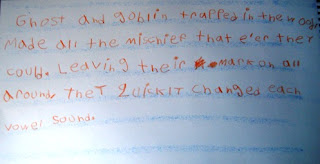 Ghost and goblin trapped in the woods
Made all the mischief that e'er ther
could. Leaving their mark on all
around theT QuickIT changed each
vowel sound.